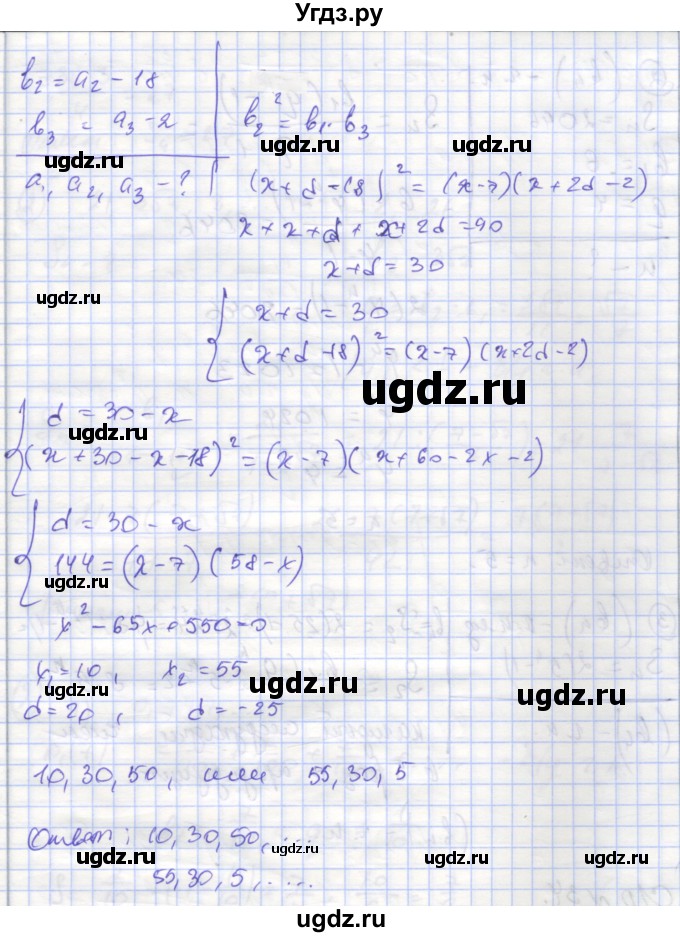 Угдз.ру
b₂ = a₂ − 18
b₃ = a₃ − 2
b₂² = b₁ · b₃
ugdz.ru ugdz.ru
a₁, a₂, a₃ − ?
(x + d − 18)² = (x − 7)(x + 2d − 2)
x + x + d + x + 2d = 90
x + d = 30
ugdz.ru
x + d = 30
(x + d − 18)² = (x − 7)(x + 2d − 2)
ugdz.ru
d = 30 − x
ugdz.ru
(x + 30 − x − 18)² = (x − 7)(x + 60 − 2x − 2)
d = 30 − x
144 = (x − 7)(58 − x)
ugdz.ru ugdz.ru
x² − 65x + 550 = 0
x₁ = 10, x₂ = 55
ugdz.ru ugdz.ru ugdz.ru
d = 20, d = −25
10, 30, 50, или 55, 30, 5
Ответ: 10, 30, 50, ....
ugdz.ru ugdz.ru ugdz.ru ugdz.ru
55, 30, 5, .....
ugdz.ru